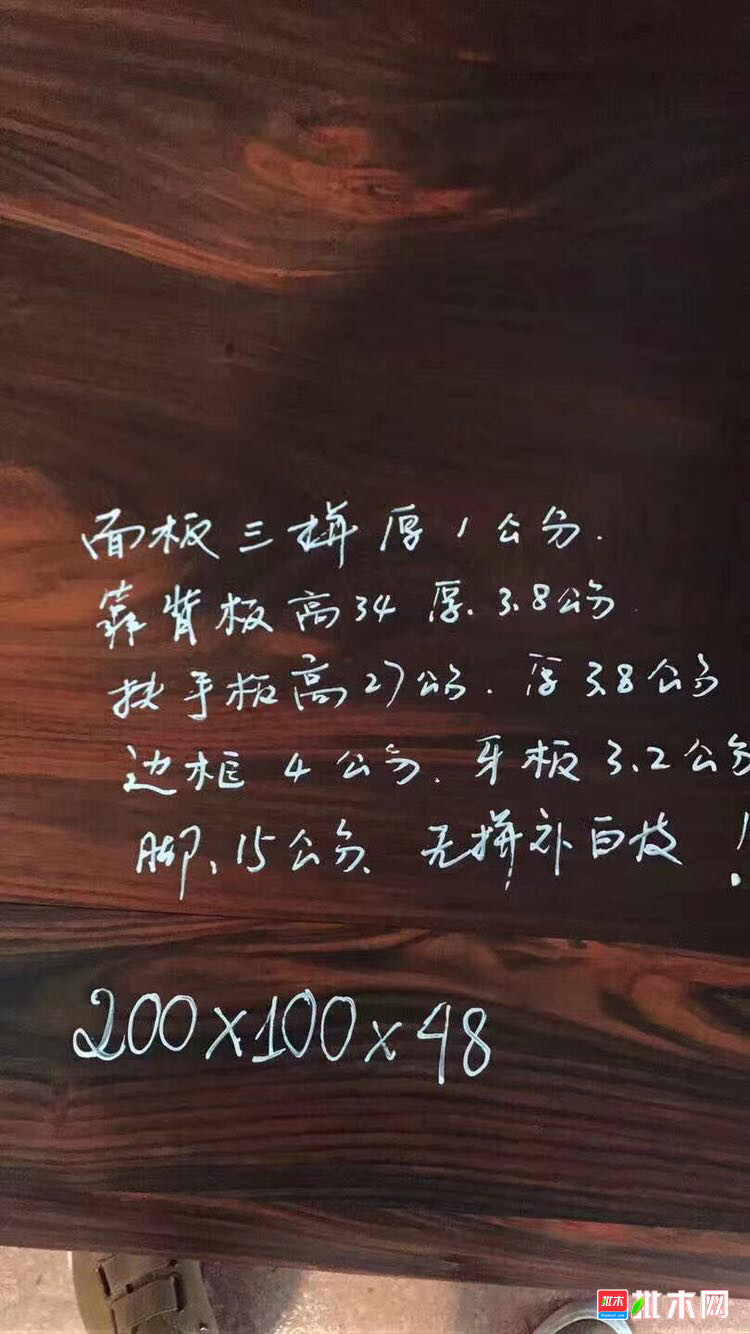 面板三拼厚1公分.
靠背板高34厚.3.8公分.
扶手板高27公分.厚3.8公分
边框4公分.牙板3.2公分
脚、15公分、无拼补白皮!
200x100x48
批木 批木网